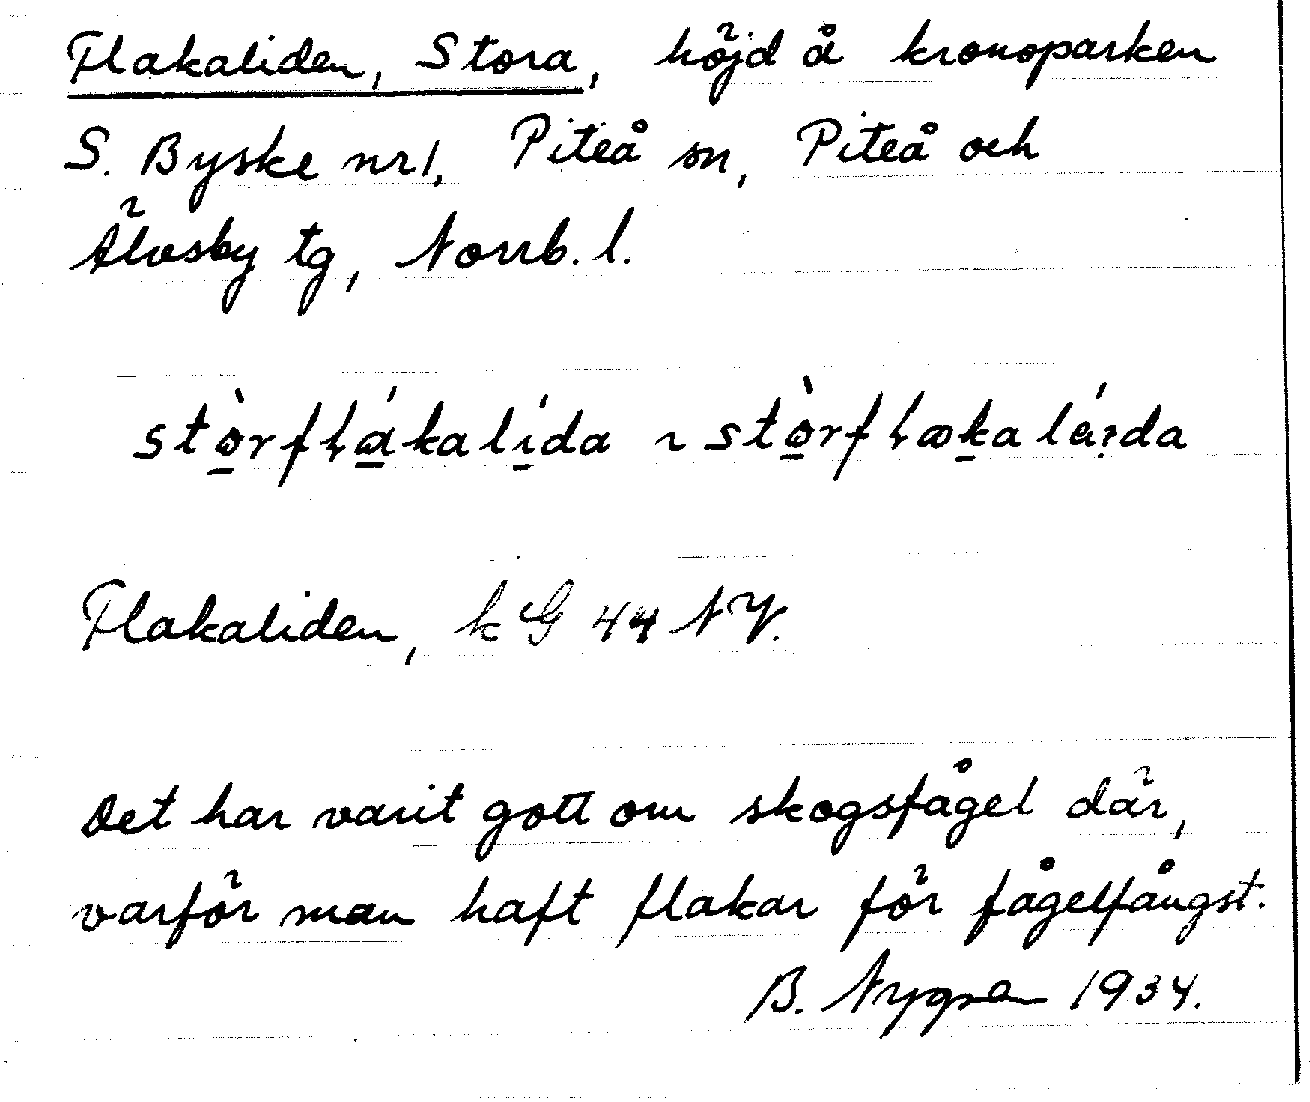 Flakaliden, Stora, höjd å kronoparken
S. Byske nr 1, Piteå sn, Piteå och
Älvsby tg, Norrb. l.
stò̱rfɫá̱kalí̱da ~ stò̱rfɫæḵaláıda
Flakaliden, kG 44 NV.
Det har varit gott om skogsfågel där,
varför man haft flakar för fågelfångst.
B. Nygren 1934.